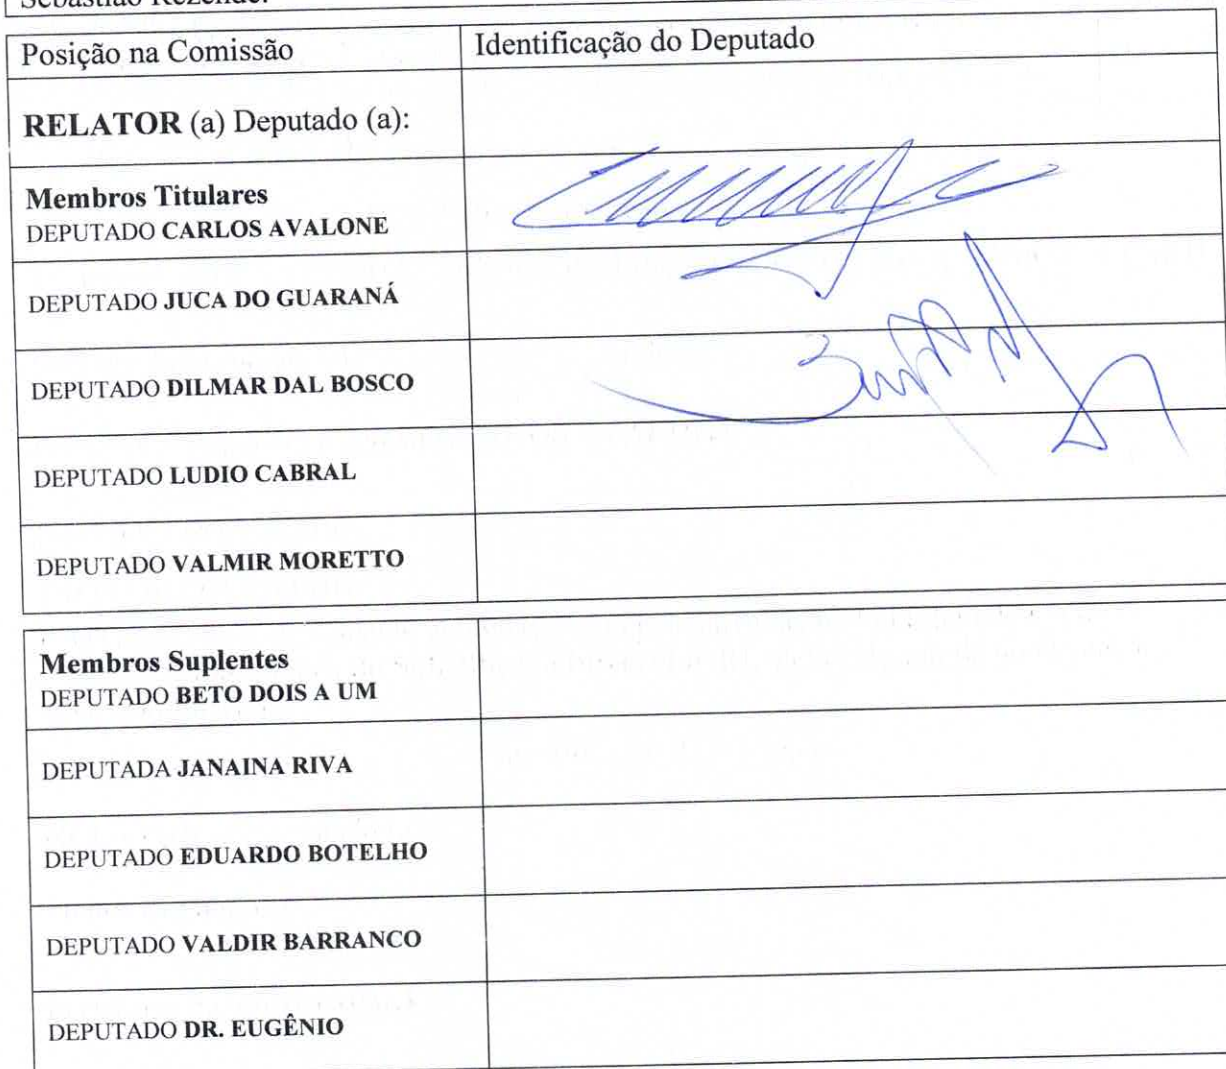 Sebastião Rezende.
Posição na Comissão
Identificação do Deputado
RELATOR (a) Deputado (a):
Membros Titulares
DEPUTADO CARLOS AVALONE
DEPUTADO JUCA DO GUARANÁ
DEPUTADO DILMAR DAL BOSCO
DEPUTADO LUDIO CABRAL
DEPUTADO VALMIR MORETTO
Membros Suplentes
DEPUTADO BETO DOIS A UM
DEPUTADA JANAINA RIVA
DEPUTADO EDUARDO BOTELHO
DEPUTADO VALDIR BARRANCO
DEPUTADO DR. EUGÊNIO